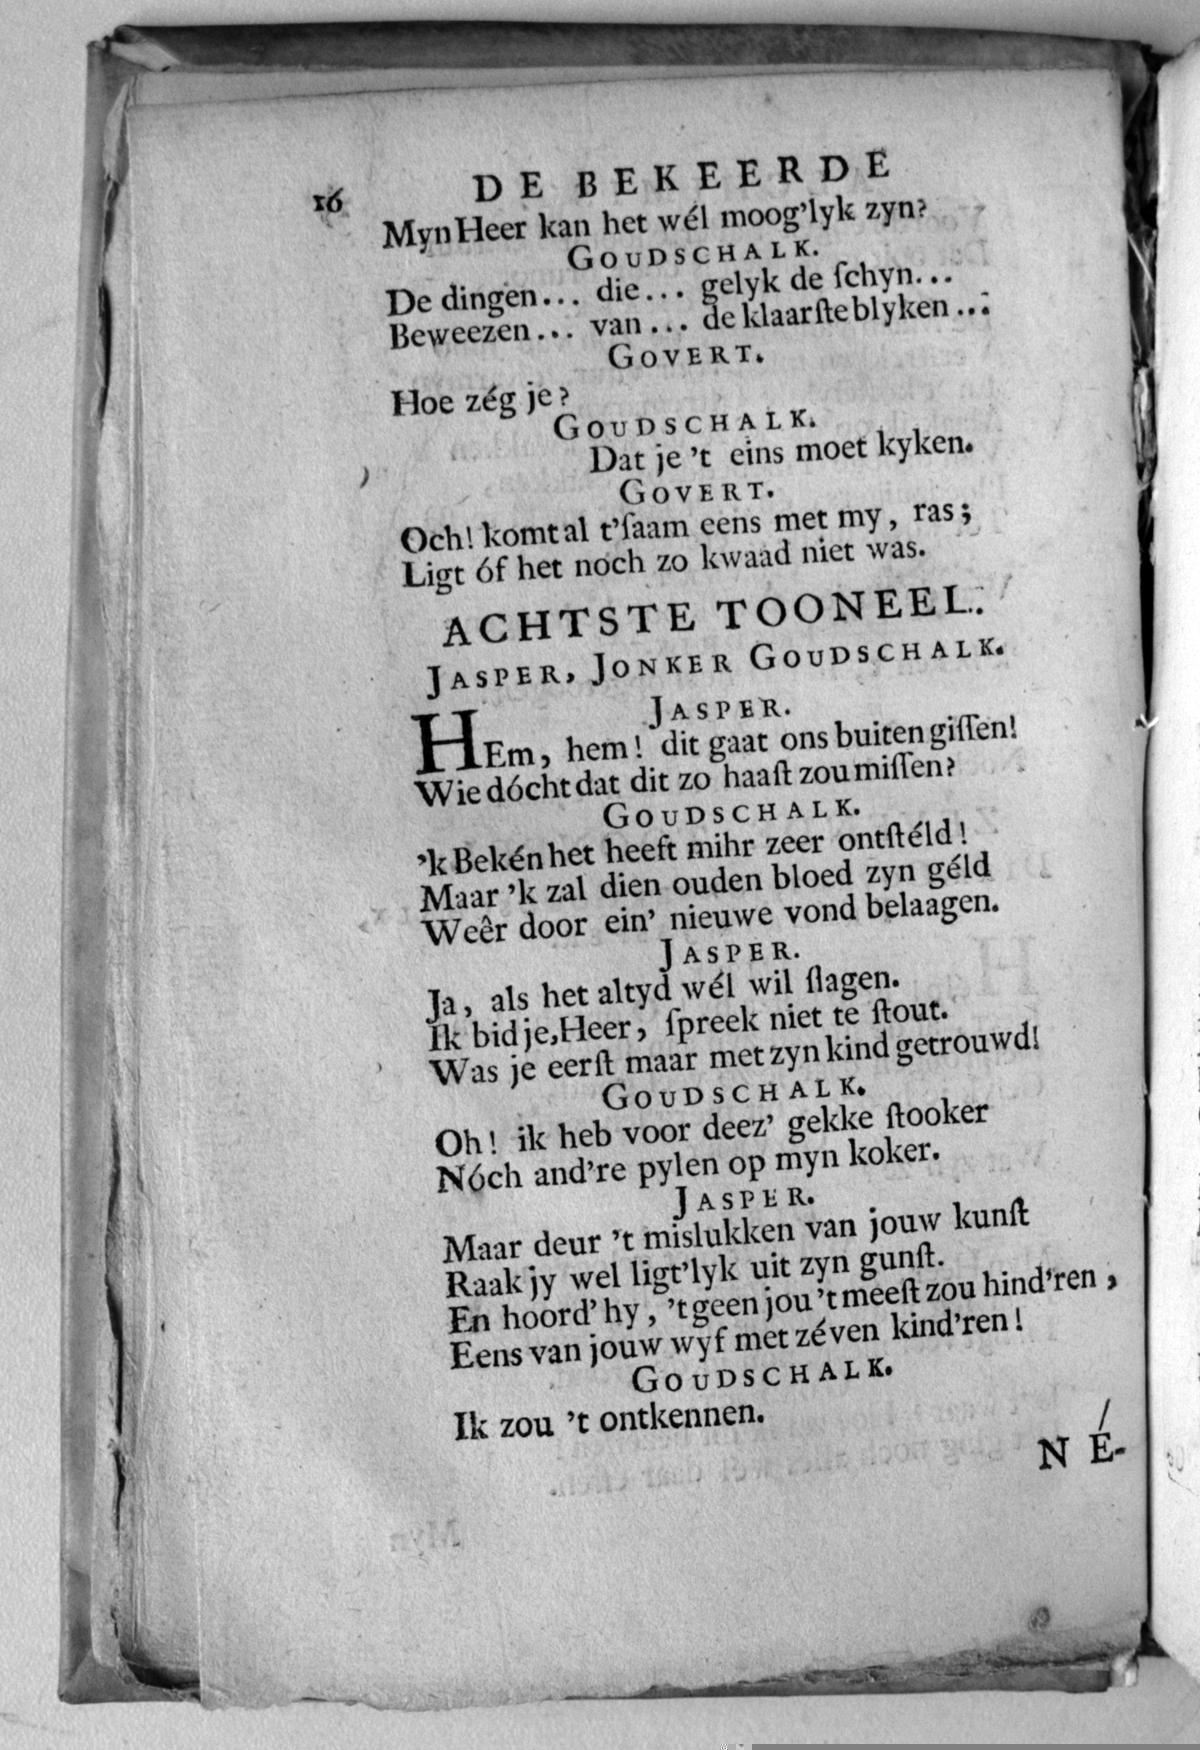 16 DE BEKEERDE
Myn Heer kan het wél moog'lyk zyn?
GOUDSCHALK.
De dingen... die... gelyk de ſchyn...
Beweezen... van... de klaarſte blyken...
GOVERT.
Hoe zég je?
GOUDSCHALK.
Dat je 't eins moet kyken.
GOVERT.
Och! komt al t'ſaam eens met my, ras;
Ligt óf het noch zo kwaad niet was.
ACHTSTE TOONEEL.
JASPER, JONKER GOUDSCHALK.
JASPER.
HEm, hem! dit gaat ons buiten giſſen!
Wie dócht dat dit zo haaſt zou miſſen?
GOUDSCHALK.
'k Bekén het heeft mihr zeer ontſtéld!
Maar 'k zal dien ouden bloed zyn géld
Weêr door ein' nieuwe vond belaagen.
JASPER.
Ja, als het altyd wél wil ſlagen.
Ik bid je, Heer, ſpreek niet te ſtout.
Was je eerſt maar met zyn kind getrouwd!
GOUDSCHALK.
Oh! ik heb voor deez' gekke ſtooker
Nóch and're pylen op myn koker.
JASPER.
Maar deur 't mislukken van jouw kunſt
Raak jy wel ligt'lyk uit zyn gunſt.
En hoord' hy, 't geen jou 't meeſt zou hind'ren,
Eens van jouw wyf met zéven kind'ren!
GOUDSCHALK.
Ik zou 't ontkennen.
NÉ-